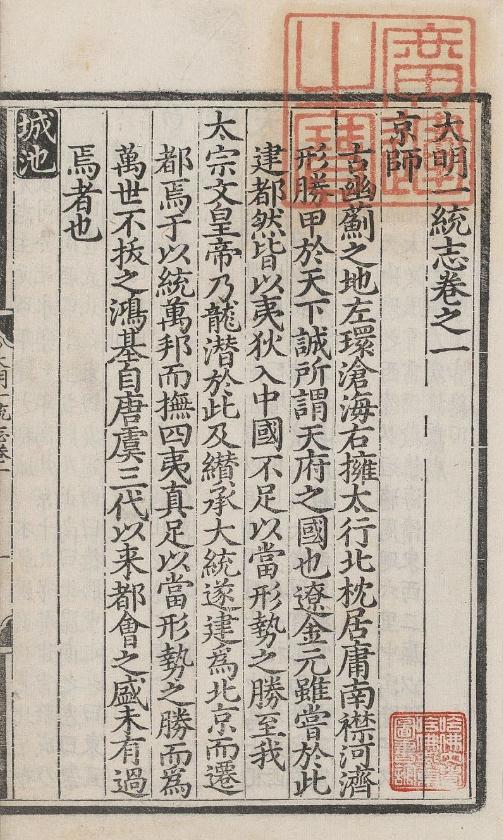 大明一統志卷之一
京師
古幽薊之地左環滄海右擁太行北枕居庸南襟河濟
形勝甲於天下誠所謂天府之國也遼金元雖嘗於此
建都然皆以夷狄入中國不足以當形勢之勝至我
太宗文皇帝乃龍潛於此及纘承大統遂建為北京而遷
都焉于以統萬邦而撫四夷真足以當形勢之勝而為
萬世不拔之鴻基自唐虞三代以来都會之盛未有過
焉者也
城池